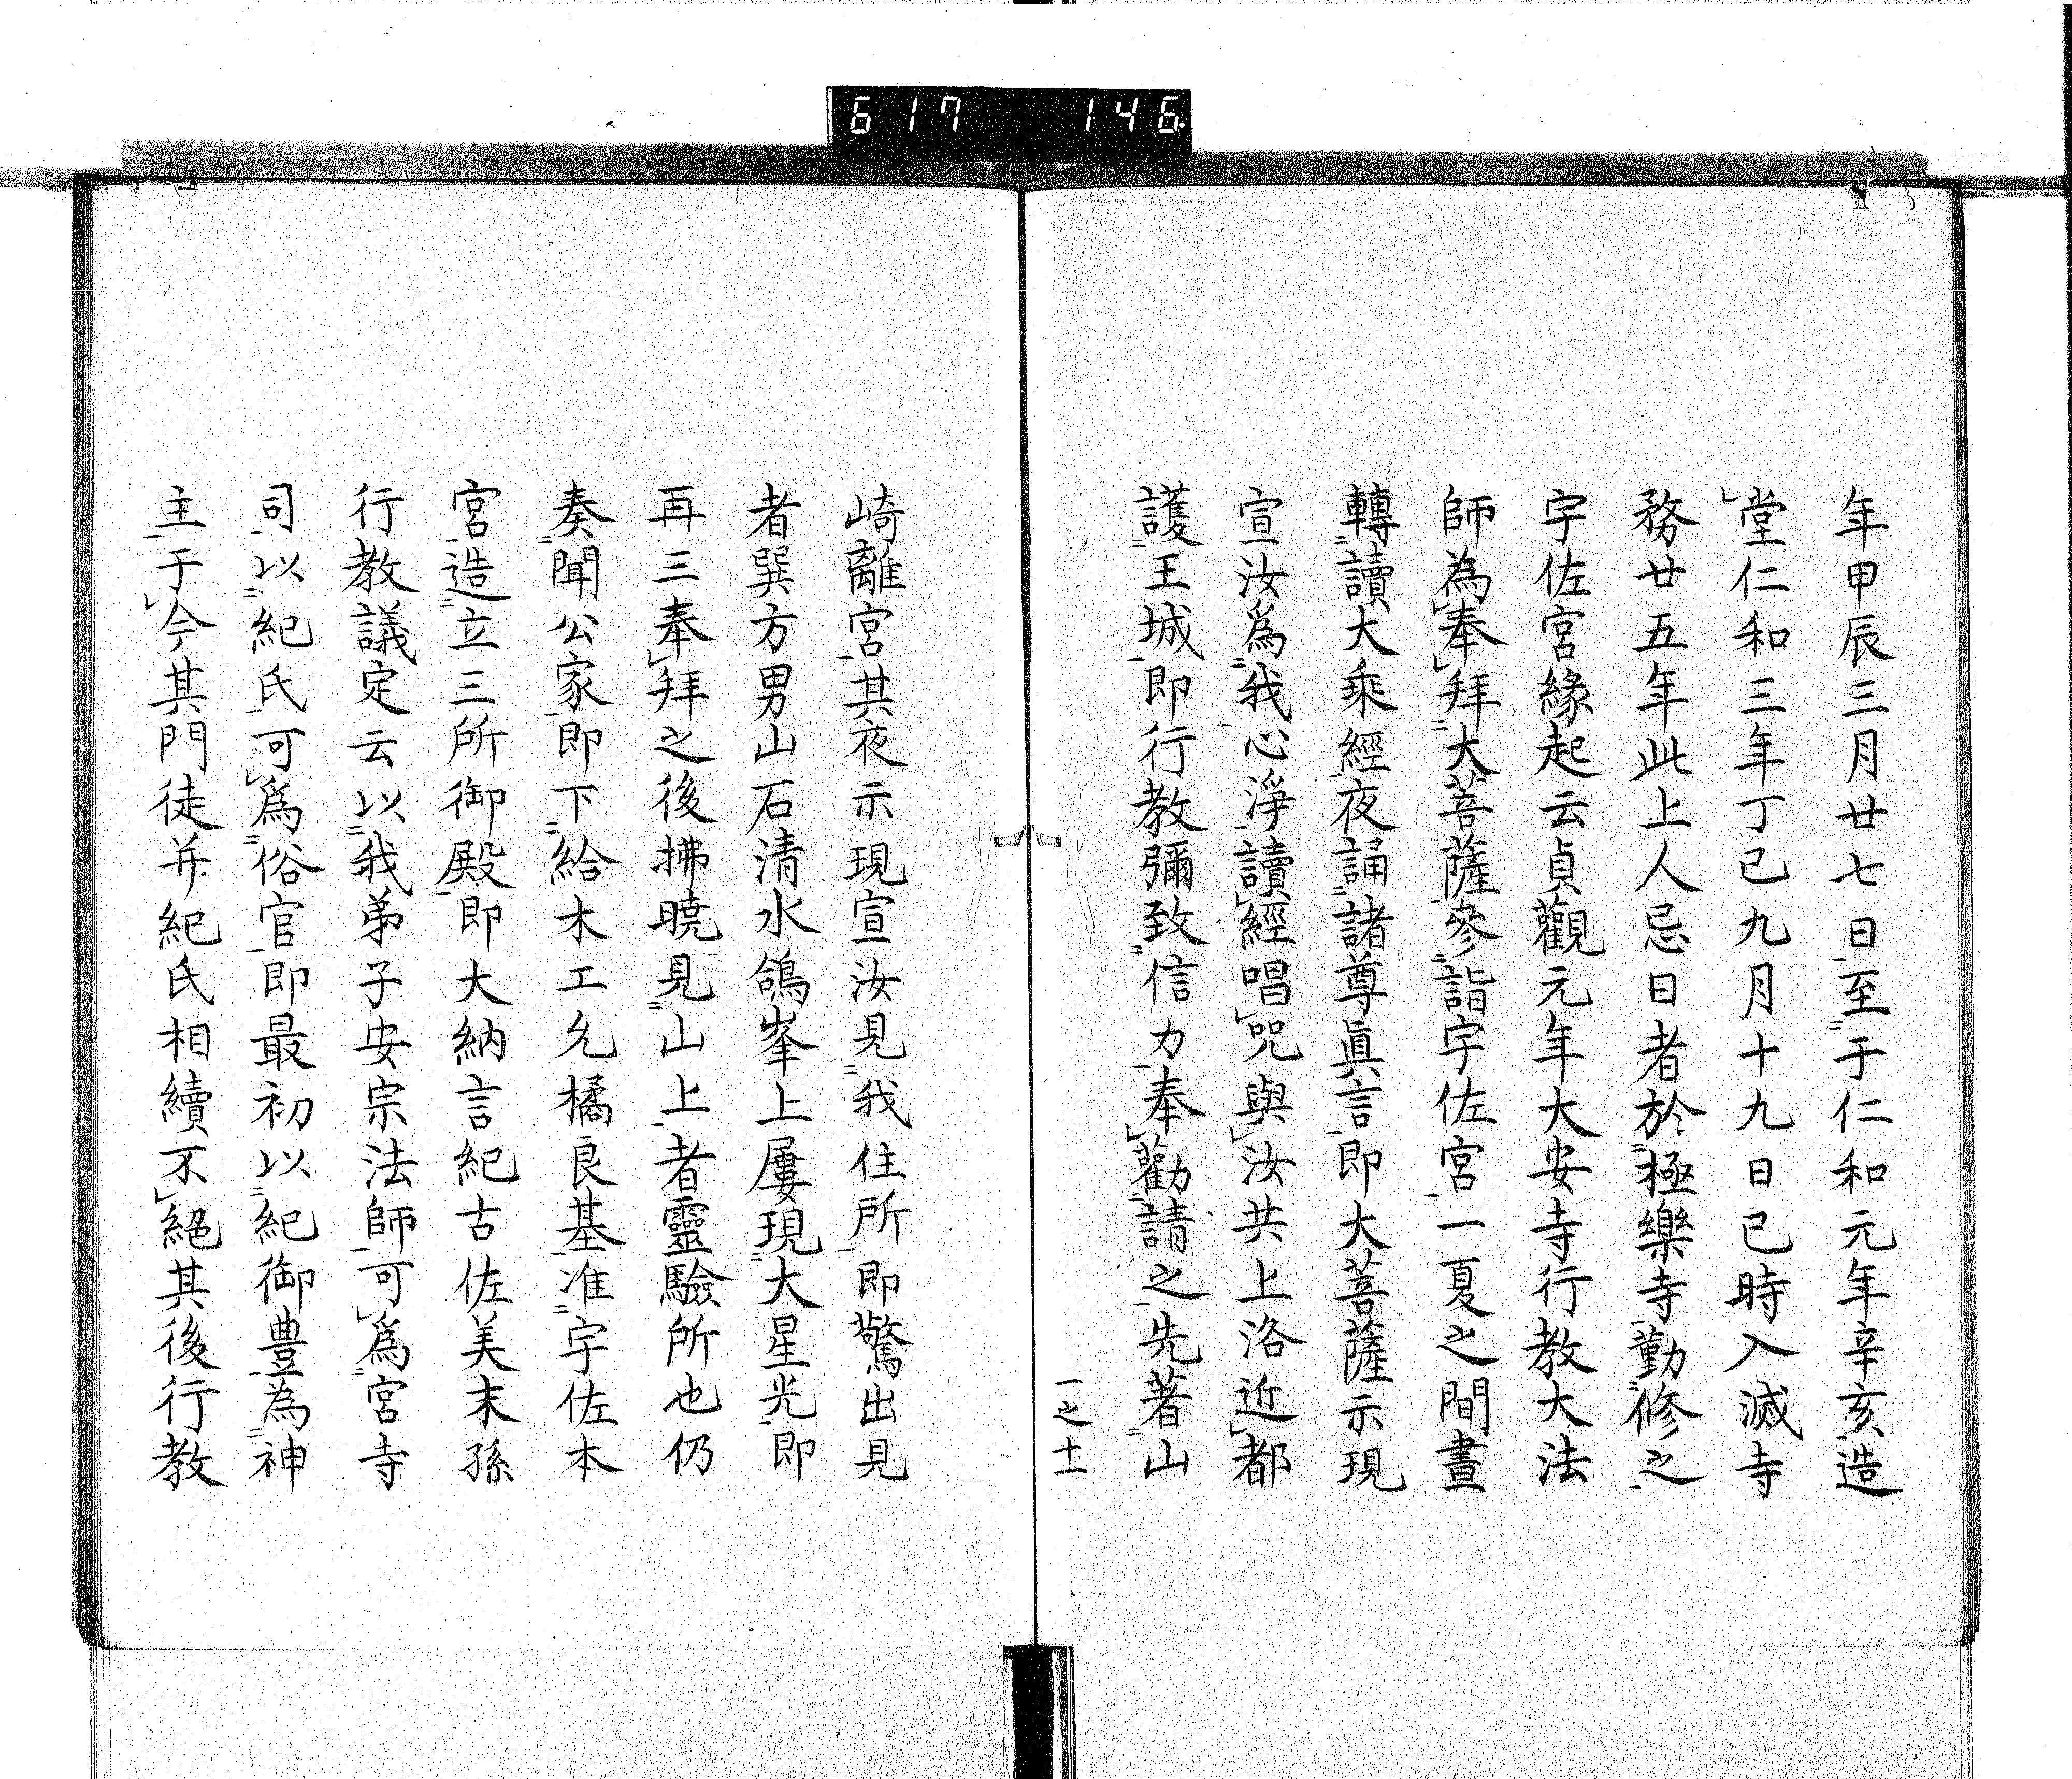 617 146
年甲辰三月廿七日至于仁和元年辛亥造
堂仁和三年丁巳九月十九日巳時入滅寺
務廿五年此上人忌日者於極樂寺勤修之
宇佐宮緣起云貞觀元年大安寺行教大法
師為奉拜大菩薩參詣宇佐宮一夏之間晝
轉讀大乘經夜誦諸尊眞言即大菩薩示現
宣汝爲我心淨讀經唱咒與汝共上洛近都
護王城即行教彌致信力奉勸請之先著山
一之十一
崎離宮其夜示現宣汝見我住所即驚出見
者巽方男山石清水鴿峯上屢現大星光即
再三奉拜之後拂曉見山上者靈驗所也仍
奏聞公家即下給木工允橘良基准宇佐本
宮造立三所御殿即大納言紀古佐美末孫
行教議定云以我弟子安宗法師可爲宮寺
司以紀氏可爲俗官即最初以紀御豊為神
主于今其門徒并紀氏相續不絕其後行教